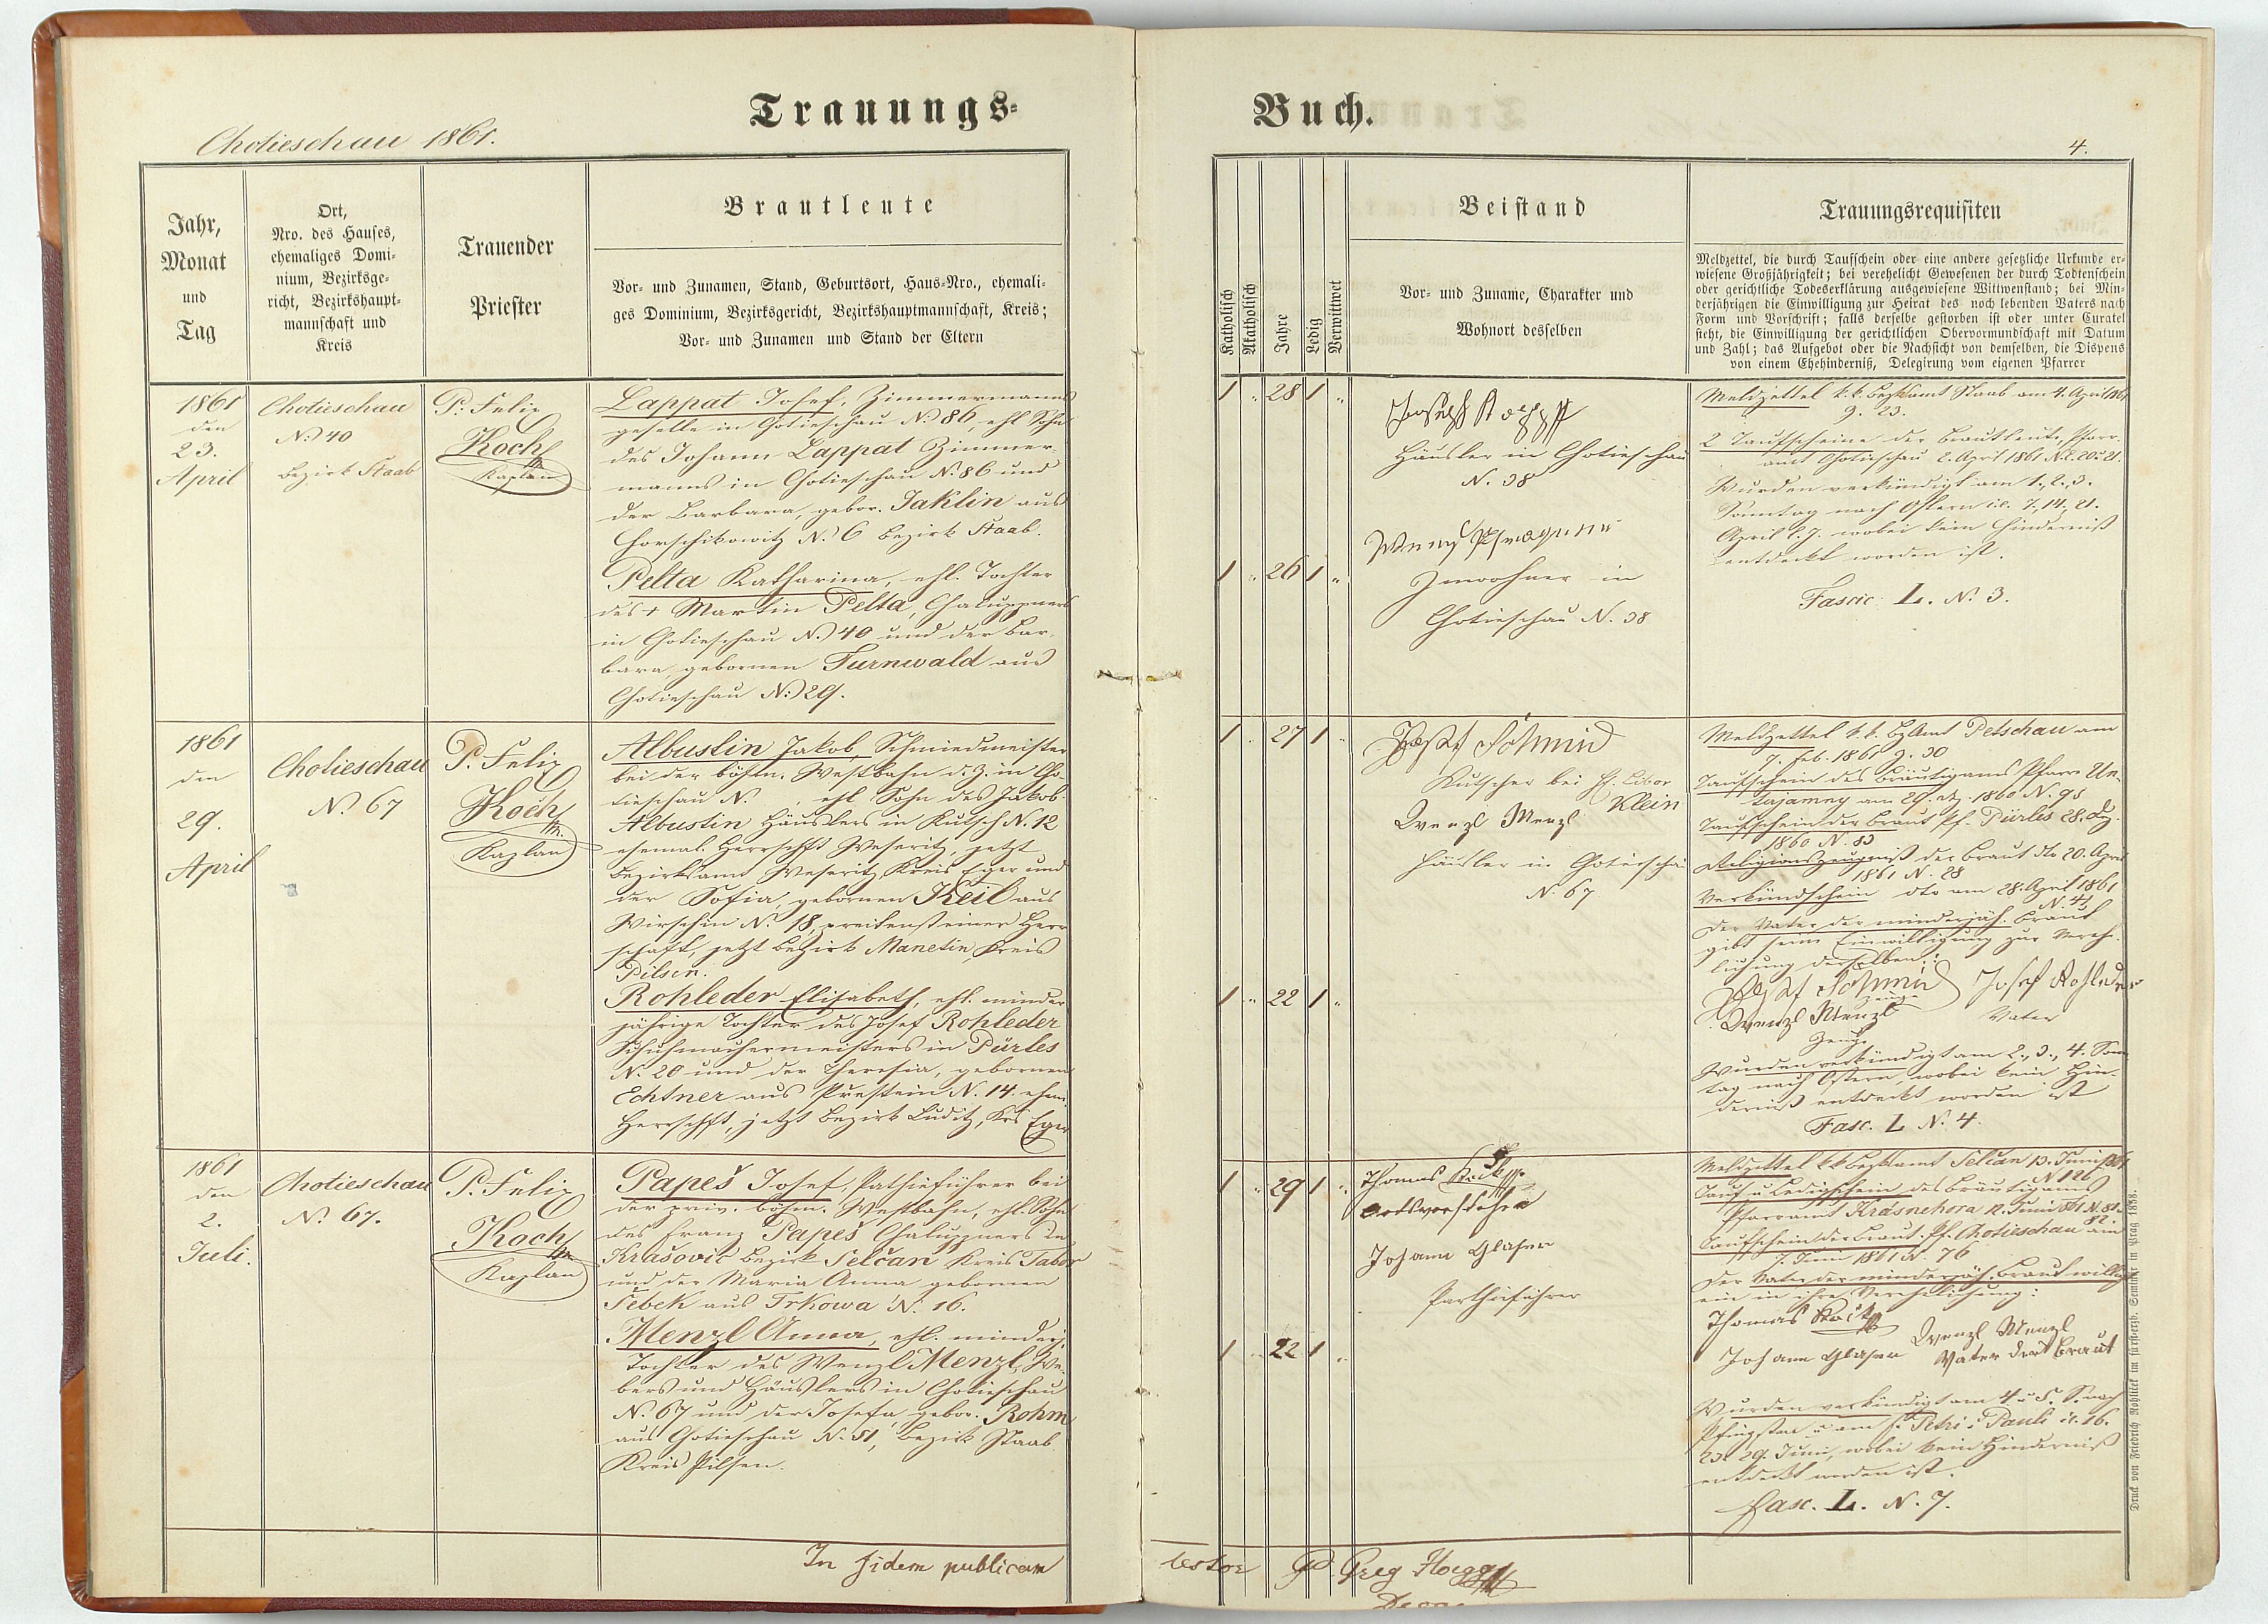 Trauungs=
Chotieschau 1861.
Jahr,
Monat
und
Tag
Ort,
Nro. des Hauses,
ehemaliges Domi=
nium, Bezirksge=
richt, Bezirkshaupt=
mannschaft und
Kreis
Trauender
Priester
Brautleute
Vor= und Zunamen, Stand, Geburtsort, Haus=Nro., ehemali=
ges Dominium, Bezirksgericht, Bezirkshauptmannschaft, Kreis;
Vor= und Zunamen und Stand der Eltern
1861
den
23.
April
Chotieschau
N. 40
Bezirk Staab
P. Felix
Koch
Kaplan
Lappat Josef, Zimmermanns
geselle in Chotieschau N. 86, ehl. Sohn
des Johann Lappat Zimmer-
manns in Chotieschau N. 86 und
der Barbara, gebor. Jaklin aus
N. 6 Bezirk Staab.
Pelta Katharina, ehl. Tochter
des + Martin Pelta, Chaluppners
in Chotieschau N. 40 und der Bar-
bara, gebornen Turnwald aus
Chotieschau N. 29.
1861
den
29.
April
Chotieschau
N. 67
P. Felix
Koch
Kaplan
Albustin Jakob, Schmiedmeister
bei der böhm. Westbahn d. Z. in Cho-
tieschau N. , ehl. Sohn des Jakob
Albustin Häuslers in Kutsch N. 12
ehemal. Herrschft Weseritz, jetzt
Bezirksamt Weseritz Kreis Eger und
der Sofia, gebornen Keil aus
Wirschin N. 18, preitensteiner Herr
schaft, jetzt Bezirk Manetin, Kreis
Pilsen.
Rohleder Elisabeth, ehl. minder
jährige Tochter des Josef Rohleder
Schuhmachermeisters in Pürles
N. 20 und der Theresia, gebornen
Echtner aus N. 14. ehm.
Herrschft, jetzt Bezirk Luditz, Krs Eger
1861
den
2.
Juli.
Chotieschau
N. 67.
P. Felix
Koch
Kaplan
Papeš Josef, Parthieführer bei
der priv. böhm. Westbahn, ehl. Sohn
des Franz Papeš Chaluppners zu
Krašovic Bezirk Selčan Kreis Tabor
und der Maria Anna gebornen
Šebek aus Trkowa N. 16.
Menzl Anna, ehl. minderj.
Tochter des Wenzl Menzl, We
bers und Häuslers in Chotieschau
N. 67 und der Josefa, gebor. Rohm
aus Chotieschau N. 51, Bezirk Staab
Kreis Pilsen.
In fidem publicam
Buch.
4.
Katholisch
Akatholisch
Jahre
Ledig
Verwittwet
Beistand
Vor= und Zuname, Charakter und
Wohnort desselben
Trauungsrequisiten
Meldzettel, die durch Taufschein oder eine andere gesetzliche Urkunde er=
wiesene Großjährigkeit; bei verehelicht Gewesenen der durch Todtenschein
oder gerichtliche Todeserklärung ausgewiesene Wittwenstand; bei Min=
derjährigen die Einwilligung zur Heirat des noch lebenden Vaters nach
Form und Vorschrift; falls derselbe gestorben ist oder unter Curatel
steht, die Einwilligung der gerichtlichen Obervormundschaft mit Datum
und Zahl; das Aufgebot oder die Nachsicht von demselben, die Dispens
von einem Ehehinderniß, Delegirung vom eigenen Pfarrer
1 " 28 1 "
Joseph
Häusler in Chotieschau
N. 38
1 " 26 1 "
Inwohner in
Chotieschau N. 38
Meldzettel k. k. Bezksamt Staab am 4. April 1861
z. 23.
2 Taufscheine der Brautleute, Pfarr-
amt Chotieschau 2. April 1861 N. E. 20 u 21.
Wurden verkündigt am 1., 2., 3.
Sonntag nach Ostern i.e. 7., 14., 21.
April l. J. wobei kein Hinderniß
entdeckt worden ist.
Fascic. L. N. 3.
1 " 27 1 "
Josef Schmid
Kutscher bei H. Libor
Klein
Wenzl Menzl
Häusler in Chotieschau
N. 67
1 " 22 1 "
Meldzettel k. k. BzAmt Petschau am
7. Feb. 1861 z. 30
Taufschein des Bräutigams Pfarre Un-
terjamny am 29. Dz. 1860 N. 95
Taufschein der Braut Pf. Pürles 28. Dz.
1860 N. 83
Religionszeugniß der Braut dto 20. April
1861 N. 28
Verkündschein dto am 28. April 1861
N. 41
Der Vater der minderjäh. Braut
gibt seine Einwilligung zur Vereh-
lichung derselben:
Josef Schmid
Zeuge
Josef Rohleder
Vater
Wenzl Menzl
Zeuge
Wurden verkündigt am 2., 3., 4. Sonn
tag nach Ostern, wobei kein Hin-
derniß entdeckt worden ist
Fasc. L N. 4.
1 " 29 1 "
Thomas
Ortsvorsteher
Johann Glaser
Parthieführer
1 " 22 1 "
Meldzettel k k Bezksamt Selčan 13. Juni 1861
N 126
Tauf u Ledigschein des Bräutigams
Pfarramt Krasnehora 12. Juni 1861 N. 81
82
Taufschein der Braut Pf. Chotieschau am
7. Juni 1861 N. 76
Der Vater der minderjäh. Braut willigt
ein in ihre Verehelichung:
Thomas
Wenzl Menzl
Johann Glaser
Vater der Braut
Wurden verkündigt am 4 u 5. S. nach
Pfingsten u am f. Petri u Pauli i.e. 16.
23. 29. Juni, wobei kein Hinderniß
entdeckt worden ist.
Fasc. L. N. 7.
testor P. Greg
Druck von Friedrich Rohliček im fürsterzb. Seminar in Prag 1858.